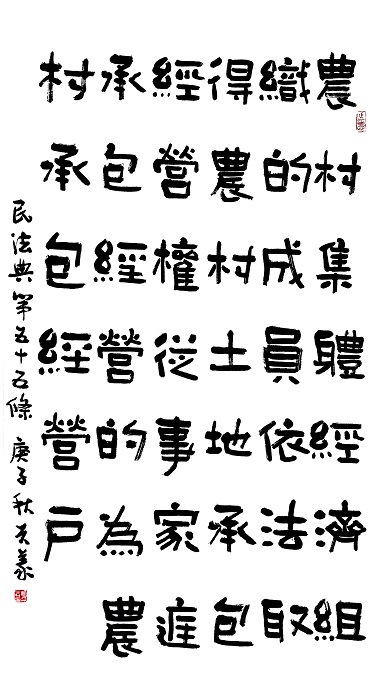 農村集體經濟組
織的成員依法取
得農村土地承包
經營權從事家庭
承包經營的為農
村承包經營戶
民法典第五十五條 庚子秋